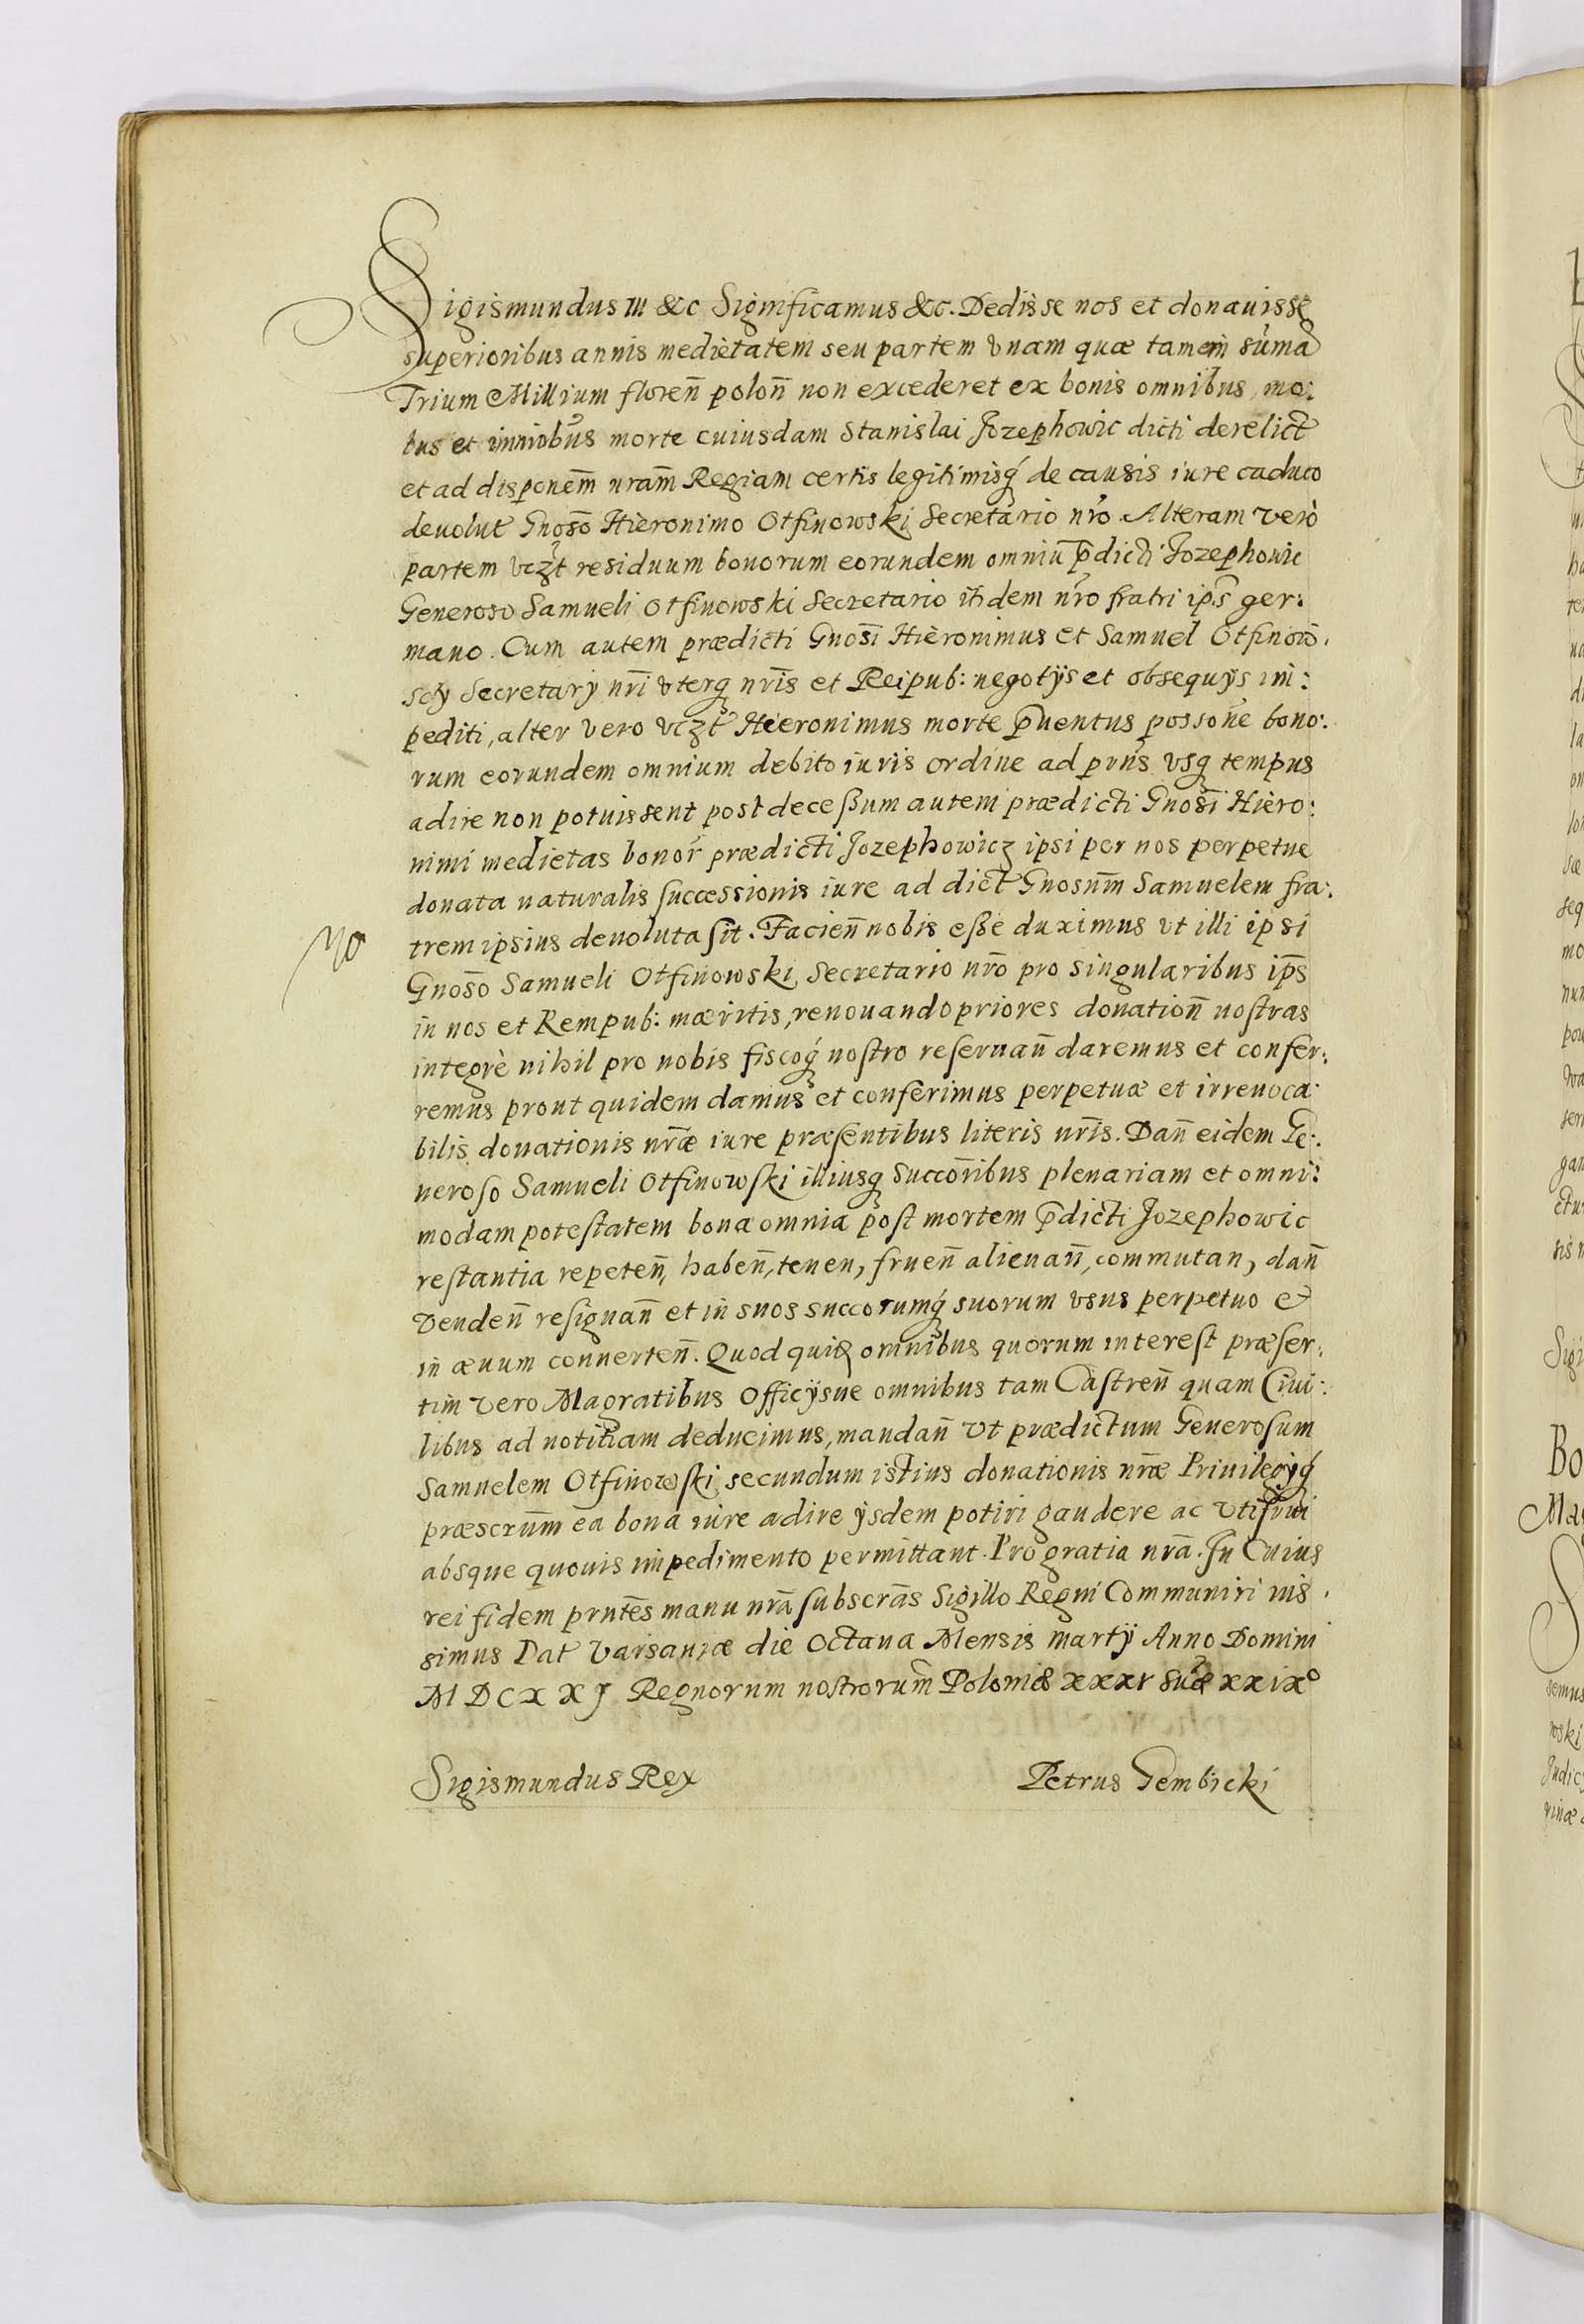 Sigismundus III &c Significamus &c. Dedisse nos et donauisse
superioribus annis medietatem seu partem vnam quæ tamem sūma
Trium Millium floren̄ polon̄ non excederet ex bonis omnibus mo:
bus et immobus morte cuiusdam Stanislai Jozephowic dicti derelict
et ad disponem̄ nram̄ Regiam certis legitimisq́ de causis iure caduco
deuolut Gnosō Hieronimo Otfinowski Secretario nrō. Alteram verò
partem vczt residuum bonorum eorundem omniū p̄dicti Jozephowic
Generoso Samueli Otfinowski Secretario itidem nrō fratri ips̄ ger:
mano. Cum autem prædicti Gnosī Hieronimus et Samuel Otfinow.
scÿ Secretarÿ nrī vterq nrīs et Reipub: negotÿs et obsequÿs im:
pediti, alter vero vczt Hieronimus morte p̄uentus possonē bono:
rum eorundem omnium debito iuris ordine ad prn̄s vsq tempus
adire non potuissent post deceßum autem prædicti Gnosī Hiero:
nimi medietas bonor̄ prædicti Jozephowicz ipsi per nos perpetue
donata naturalis successionis iure ad dict Gnosum̄ Samuelem fra:
trem ipsius deuoluta sit. Facien̄ nobis eße duximus vt illi ipsi
Gnosō Samueli Otfinowski Secretario nrō pro singularibus ips̄
in nos et Rempub: mæritis, renouando priores donation̄ nostras
integrè nihil pro nobis fiscoq́ nostro reseruan̄ daremus et confer:
remus prout quidem damus et conferimus perpetuæ et irreuoca:
bilis donationis nr̄æ iure præsentibus literis nrīs. Dan̄ eidem Ge:
neroso Samueli Otfinowski illiusq Succorībus plenariam et omni:
modam potestatem bona omnia post mortem p̄dicti Jozephowic
restantia repeten̄, haben̄, tenen, fruen̄ alienan̄, commutan, dan̄
venden̄ resignan̄ et in suos succorumq́ suorum vsus perpetuo et
in æuum conuerten̄. Quod omnibus quorum interest præser:
tim vero Magratibus Officÿsue omnibus tam Castren̄ quam Ciui:
libus ad notitiam deducimus, mandan̄ vt prædictum Generosum
Samuelem Otfinowski secundum istius donationis nr̄æ Priuilegÿq́
præscrum̄ ea bona iure adire ÿsdem potiri gaudere ac vtifrui
absque quouis impedimento permittant. Pro gratia nrā. In Cuius
rei fidem prntēs manu nrā subscrās Sigillo Regni Communiri ius
simus Dat Varsauiæ die Octaua Mensis Martÿ Anno Domini
MDCXXJ Regnorum nostrorum Poloniæ xxxiv Suæ xxixº
Sigismundus Rex
Petrus Gembicki